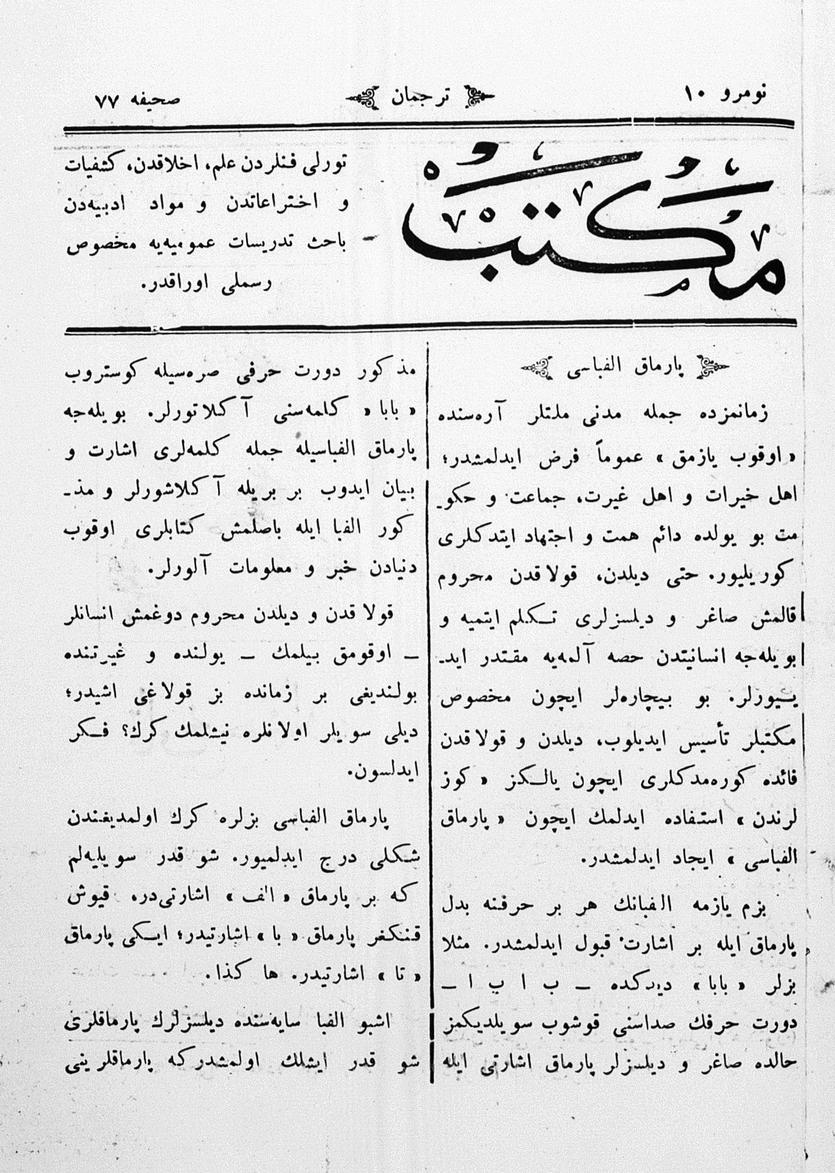 نومرو ۱۰
ترجمان
صحیفه ۷۷
مکتب
تورلی فنلردن علم، اخلاقدن، کشفیات
و اختراعاتدن و مواد ادبیه‌دن
باحث تدریسات عمومیه‌یه مخصوص
رسملی اوراقدر.
پارماق الفباسی
زمانمزده جمله مدنی ملتلر آره‌سنده
«اوقوب یازمق» عموماً فرض ایدلمشدر؛
اهل خیرات و اهل غیرت، جماعت و حکو-
مت بو یولده دائم همت و اجتهاد ایتدکلری
کوریلیور. حتی دیلدن، قولاقدن محروم
قالمش صاغر و دیلسزلری تکلم ایتمیه و
بویله‌جه انسانیتدن حصه آلمه‌یه مقتدر اید-
یـیورلر. بو بیچاره‌لر ایچون مخصوص
مکتبلر تأسیس ایدیلوب، دیلدن و قولاقدن
فائده کوره‌مدکلری ایچون یالکز «کوز
لرندن» استفاده ایدلمك ایچون «پارماق
الفباسی» ایجاد ایدلمشدر.
بزم یازمه الفبانك هر بر حرفنه بدل
پارماق ایله بر اشارت قبول ایدلمشدر. مثلا
بزلر «بابا» دیدکده — ب ا ب ا —
دورت حرفك صداسنی قوشوب سویلدیکمز
حالده صاغر و دیلسزلر پارماق اشارتی ایله
مذکور دورت حرفی صره‌سیله کوستروب
«بابا» کلمه‌سنی آکلاتورلر. بویله‌جه
پارماق الفباسیله جمله کلمه‌لری اشارت و
بیان ایدوب بر بریله آکلاشورلر و مذ-
کور الفبا ایله باصلمش کتابلری اوقوب
دنیادن خبر و معلومات آلورلر.
قولاقدن و دیلدن محروم دوغمش انسانلر
— اوقومق بیلمك — یولنده و غیرتنده
بولندیغی بر زمانده بز قولاغی اشیدر؛
دیلی سویلر اولانلره نیشلمك کرك؟ فکر
ایدلسون.
پارماق الفباسی بزلره کرك اولمدیغندن
شکلی درج ایدلمیور. شو قدر سویلیه‌لم
که بر پارماق «الف» اشارتی‌در، قیوش
قنکغر پارماق «با» اشارتیدر؛ ایکی پارماق
«تا» اشارتیدر. ها کذا.
اشبو الفبا سایه‌سنده دیلسزلرك پارماقلری
شو قدر ایشلك اولمشدرکه پارماقلرینی